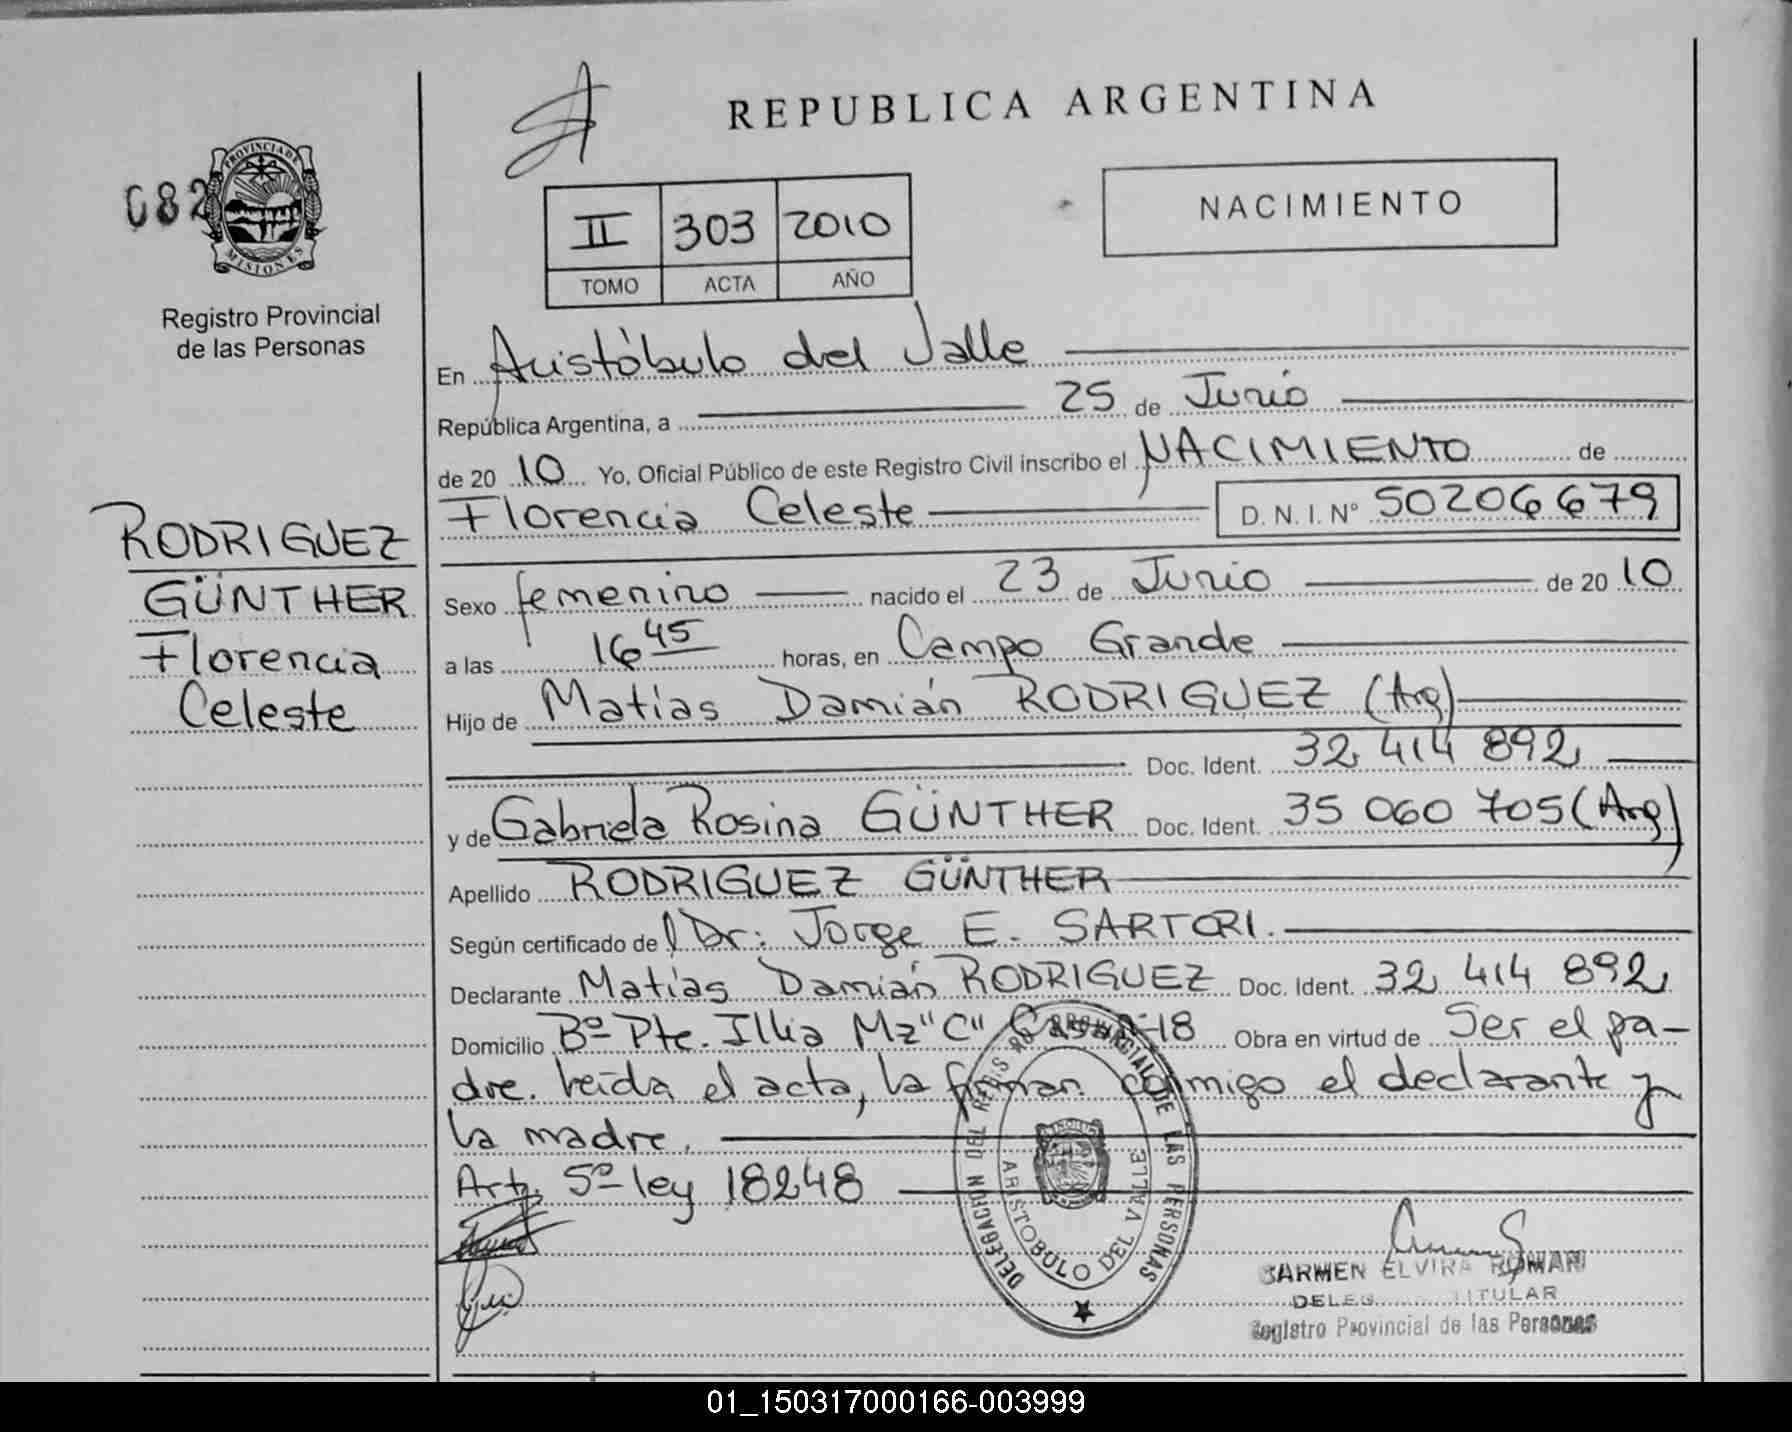 REPUBLICA ARGENTINA
082
PROVINCIA DE
MISIONES
Registro Provincial
de las Personas
II 303 2010
TOMO ACTA AÑO
NACIMIENTO
En Aristóbulo del Valle
República Argentina, a 25 de Junio
de 2010 Yo, Oficial Público de este Registro Civil inscribo el NACIMIENTO de
Florencia Celeste D. N. I. Nº 50206679
RODRIGUEZ
GÜNTHER
Florencia
Celeste
Sexo femenino nacido el 23 de Junio de 2010
a las 16 45 horas, en Campo Grande
Hijo de Matías Damián RODRIGUEZ (Arg)
Doc. Ident. 32 414 892
y de Gabriela Rosina GÜNTHER Doc. Ident. 35 060 705 (Arg)
Apellido RODRIGUEZ GÜNTHER
Según certificado del Dr: Jorge E. SARTORI.
Declarante Matías Damián RODRIGUEZ Doc. Ident. 32 414 892
Domicilio Bº Pte. Illia Mz "C" Casa 18 Obra en virtud de Ser el pa-
dre. Leída el acta, la firman conmigo el declarante y
la madre.
Art. 5º ley 18248
DELEGACION DEL REGISTRO PROVINCIAL DE LAS PERSONAS
ARISTOBULO DEL VALLE
CARMEN ELVIRA ROMAN
TITULAR
Registro Provincial de las Personas
01_150317000166-003999